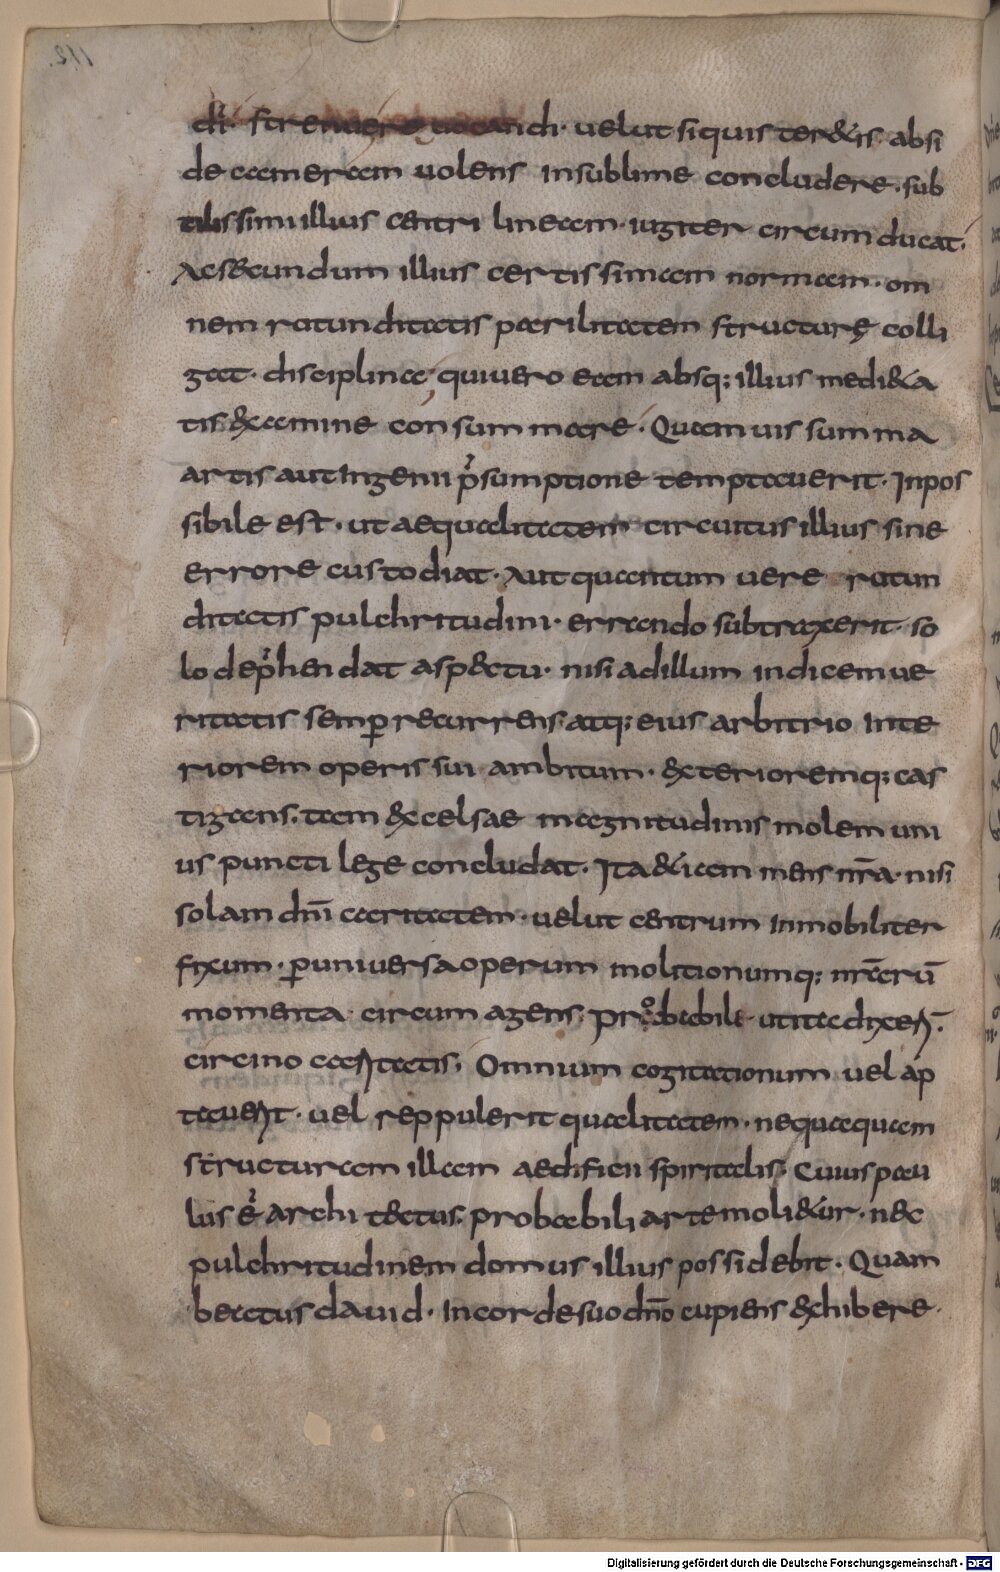 di· strenuere uocandi· uelut siquis teretis absi
de cameram uolens insublime concludere. sub
tilissimi illius centri lineam· iugiter circumducat.
Ac secundum illius certissimam normam· om
nem rotunditatis parilitatem structurę colli
gat· disciplina· qui uero eam absq; illius medieta
tis examine consummare. Quamuis summa
artis aut ingenii p̄sumptione temptauerit· Inpos
sibile est· ut aequalitatem circuitus illius sine
errore custodiat· Aut quantum uere rotun
ditatis pulchritudini· errando subtraxerit· so
lo dep̄hendat aspectu· nisi ad illum indicem ue
ritatis semꝑ recurrens· atq; eius arbitrio inte
riorem operis sui ambitum· exterioremq; cas
tigans. tam excelsae magnitudinis molem uni
us puncti lege concludat. Ita etiam mens nr̄a· nisi
solam dnī caritatem· uelut centrum inmobiliter
fixum· ꝑ uniuersa operum molitionumq; nr̄arū
momenta circum agens. probabili ut ita dixerī.
circino caritatis. Omnium cogitationum uel ap
tauerit· uel reppulerit qualitatem· nequaquam
structuram illam aedificii spiritalis. Cuius pau
lus ē architectus. probabili arte molietur· nec
pulchritudinem domus illius possidebit. Quam
beatus dauid· In corde suo dn̄o cupiens exhibere·
112.
Digitalisierung gefördert durch die Deutsche Forschungsgemeinschaft - DFG